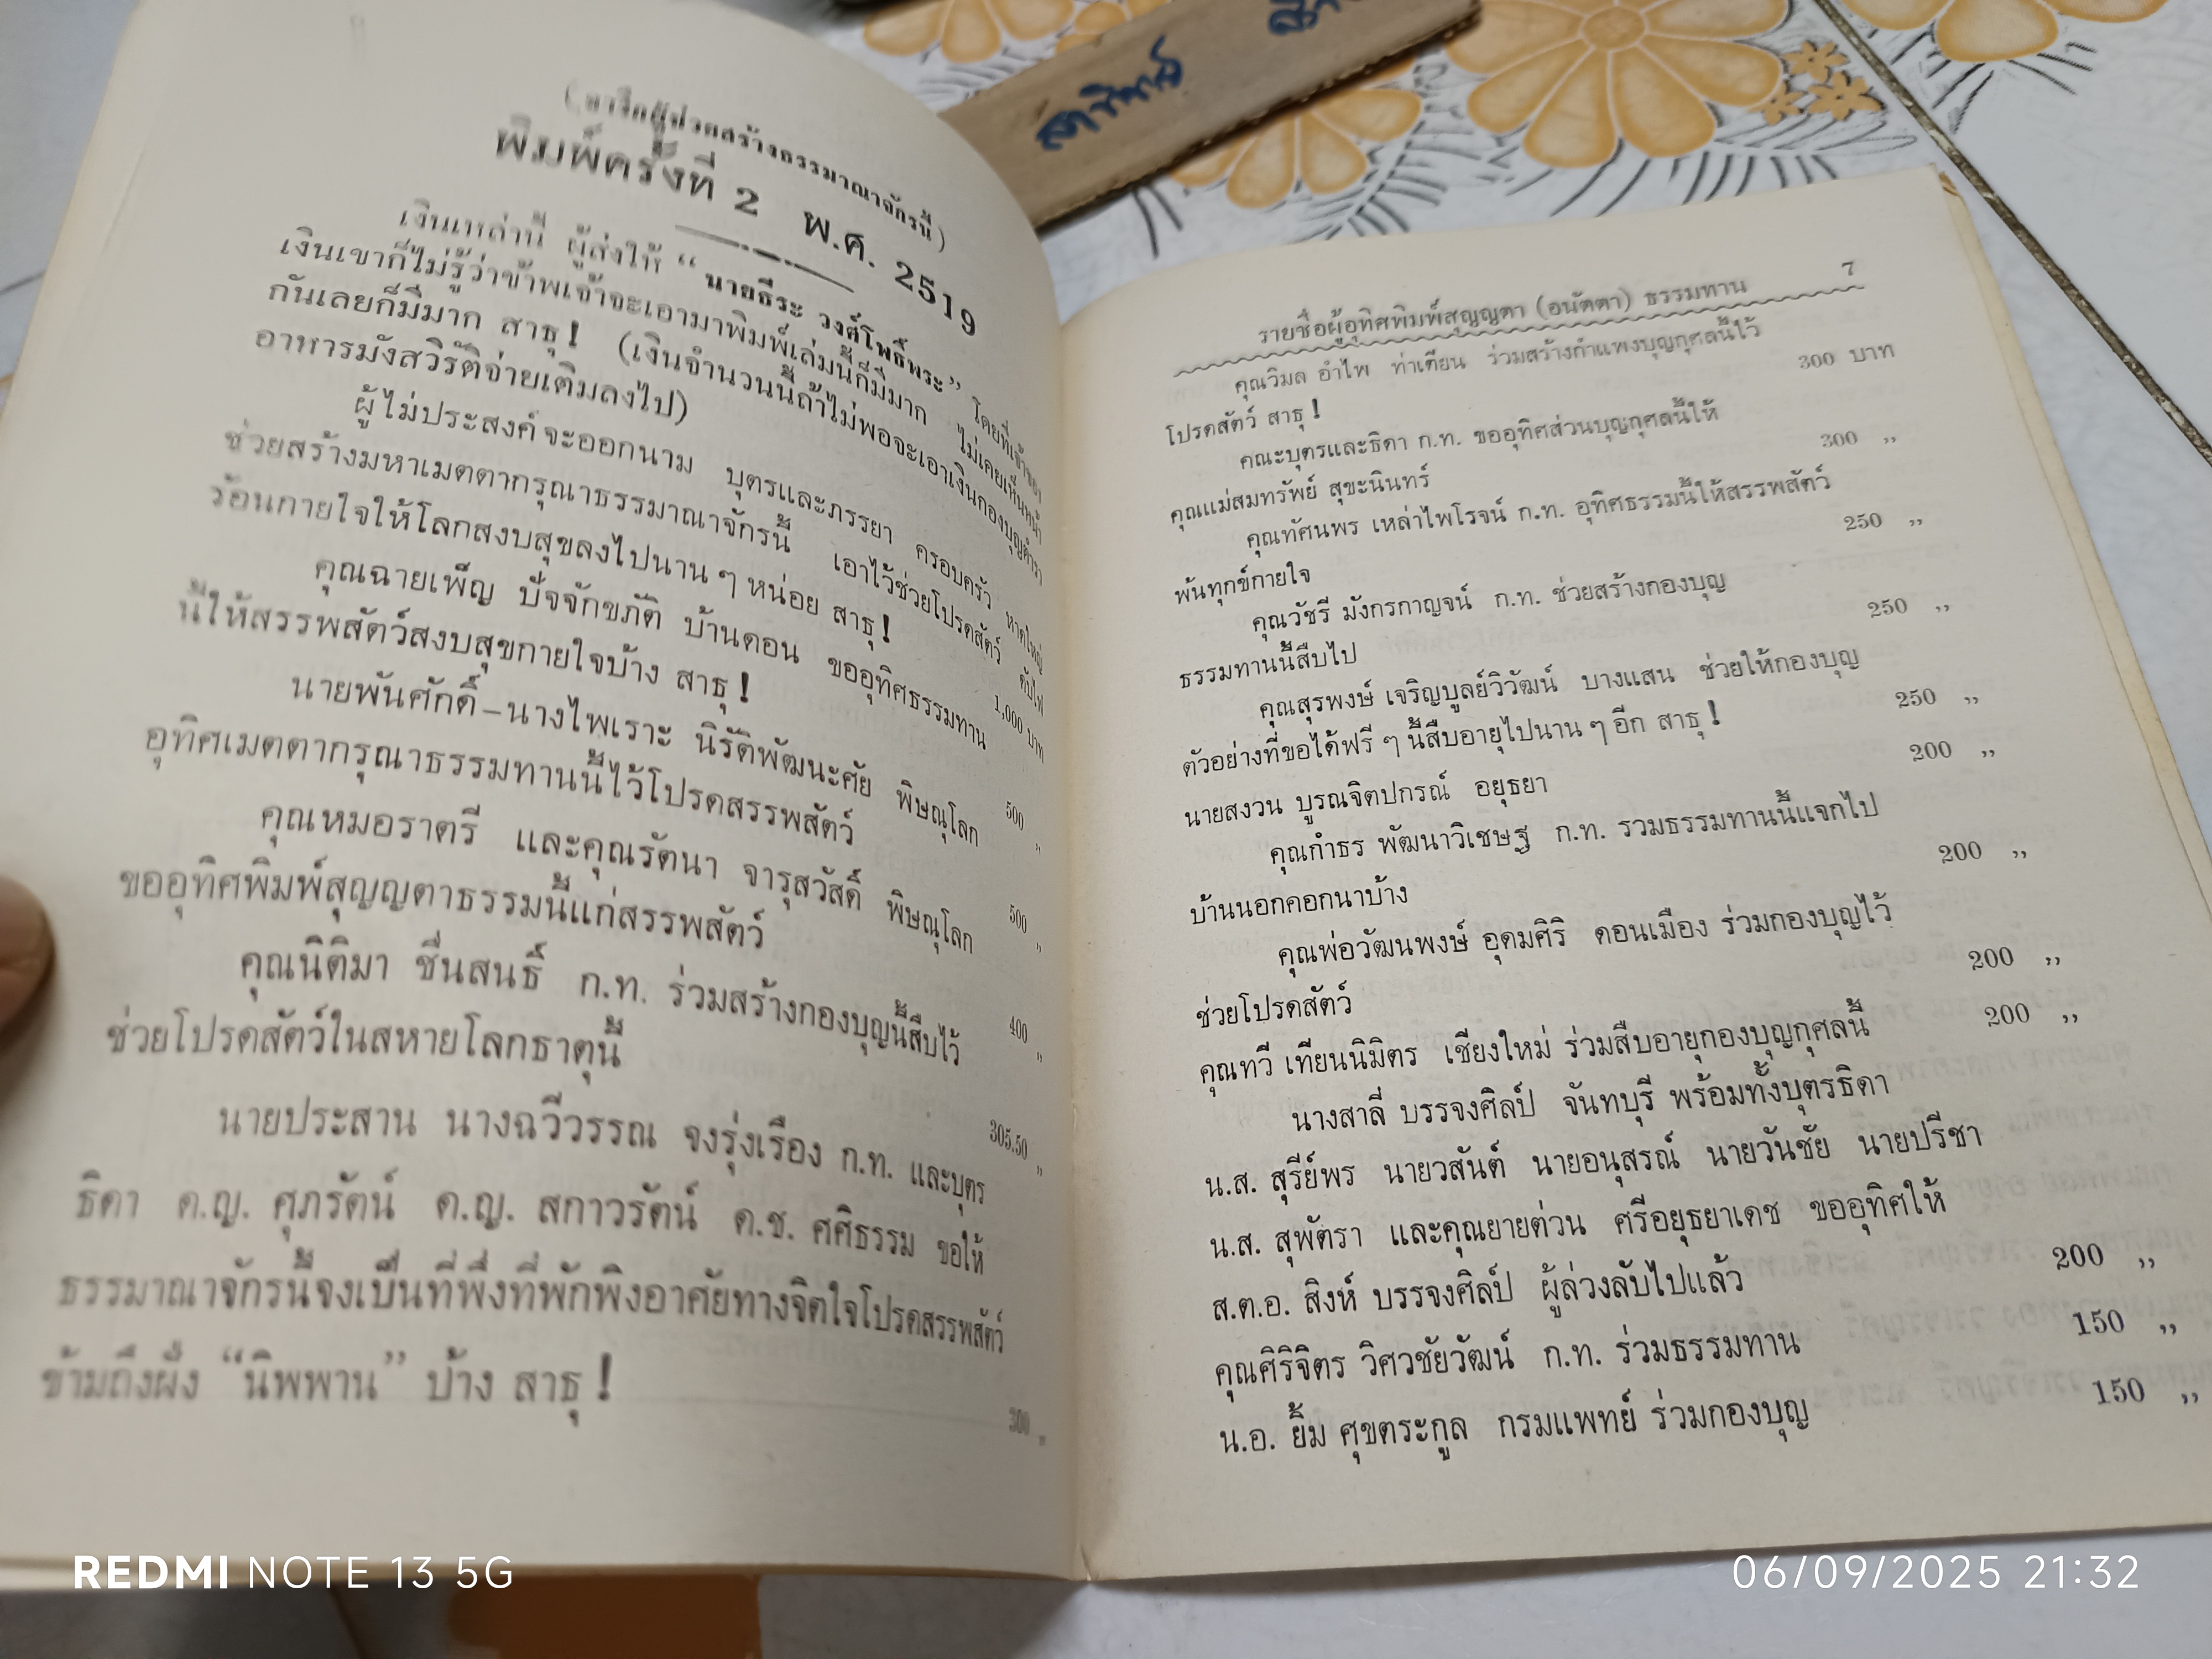 (จารึกผู้ช่วยสร้างธรรมาณาจักรนี้)
พิมพ์ครั้งที่ 2 พ.ศ. 2519
เงินเหล่านี้ ผู้ส่งให้ “นายธีระ วงศ์โพธิ์พระ” โดยที่เจ้าของ
เงินเขาก็ไม่รู้ว่าข้าพเจ้าจะเอามาพิมพ์เล่มนี้ก็มีมาก ไม่เคยเห็นหน้า
กันเลยก็มีมาก สาธุ! (เงินจำนวนนี้ถ้าไม่พอจะเอาเงินกองบุญตำรา
อาหารมังสวิรัติจ่ายเติมลงไป)
ผู้ไม่ประสงค์จะออกนาม บุตรและภรรยา ครอบครัว หาดใหญ่
ช่วยสร้างมหาเมตตากรุณาธรรมาณาจักรนี้ เอาไว้ช่วยโปรดสัตว์ ดับไฟ
ร้อนกายใจให้โลกสงบสุขลงไปนาน ๆ หน่อย สาธุ! 1,000 บาท
คุณฉายเพ็ญ ปัจจักขภัติ บ้านดอน ขออุทิศธรรมทาน
นี้ให้สรรพสัตว์สงบสุขกายใจบ้าง สาธุ! 500 ,,
นายพันศักดิ์–นางไพเราะ นิรัติพัฒนะศัย พิษณุโลก
อุทิศเมตตากรุณาธรรมทานนี้ไว้โปรดสรรพสัตว์ 500 ,,
คุณหมอราตรี และคุณรัตนา จารุสวัสดิ์ พิษณุโลก
ขออุทิศพิมพ์สุญญตาธรรมนี้แก่สรรพสัตว์ 400 ,,
คุณนิติมา ชื่นสนธิ์ ก.ท. ร่วมสร้างกองบุญนี้สืบไว้
ช่วยโปรดสัตว์ในสหายโลกธาตุนี้ 305.50 ,,
นายประสาน นางฉวีวรรณ จงรุ่งเรือง ก.ท. และบุตร
ธิดา ด.ญ. ศุภรัตน์ ด.ญ. สกาวรัตน์ ด.ช. ศศิธรรม ขอให้
ธรรมาณาจักรนี้จงเป็นที่พึ่งที่พักพิงอาศัยทางจิตใจโปรดสรรพสัตว์
ข้ามถึงฝั่ง “นิพพาน” บ้าง สาธุ! 300 ,,
7
รายชื่อผู้อุทิศพิมพ์สุญญตา (อนัตตา) ธรรมทาน
คุณวิมล อำไพ ท่าเตียน ร่วมสร้างกำแพงบุญกุศลนี้ไว้
โปรดสัตว์ สาธุ! 300 บาท
คณะบุตรและธิดา ก.ท. ขออุทิศส่วนบุญกุศลนี้ให้
คุณแม่สมทรัพย์ สุขะนินทร์ 300 ,,
คุณทัศนพร เหล่าไพโรจน์ ก.ท. อุทิศธรรมนี้ให้สรรพสัตว์
พ้นทุกข์กายใจ 250 ,,
คุณวัชรี มังกรกาญจน์ ก.ท. ช่วยสร้างกองบุญ
ธรรมทานนี้สืบไป 250 ,,
คุณสุรพงษ์ เจริญบูลย์วิวัฒน์ บางแสน ช่วยให้กองบุญ
ตัวอย่างที่ขอได้ฟรี ๆ นี้สืบอายุไปนาน ๆ อีก สาธุ! 250 ,,
นายสงวน บูรณจิตปกรณ์ อยุธยา 200 ,,
คุณกำธร พัฒนาวิเชษฐ ก.ท. รวมธรรมทานนี้แจกไป
บ้านนอกคอกนาบ้าง 200 ,,
คุณพ่อวัฒนพงษ์ อุดมศิริ ดอนเมือง ร่วมกองบุญไว้
ช่วยโปรดสัตว์ 200 ,,
คุณทวี เทียนนิมิตร เชียงใหม่ ร่วมสืบอายุกองบุญกุศลนี้ 200 ,,
นางสาลี่ บรรจงศิลป์ จันทบุรี พร้อมทั้งบุตรธิดา
น.ส. สุรีย์พร นายวสันต์ นายอนุสรณ์ นายวันชัย นายปรีชา
น.ส. สุพัตรา และคุณยายต่วน ศรีอยุธยาเดช ขออุทิศให้
ส.ต.อ. สิงห์ บรรจงศิลป์ ผู้ล่วงลับไปแล้ว 200 ,,
คุณศิริจิตร วิศวชัยวัฒน์ ก.ท. ร่วมธรรมทาน 150 ,,
น.อ. ยิ้ม ศุขตระกูล กรมแพทย์ ร่วมกองบุญ 150 ,,
REDMI NOTE 13 5G
06/09/2025 21:32